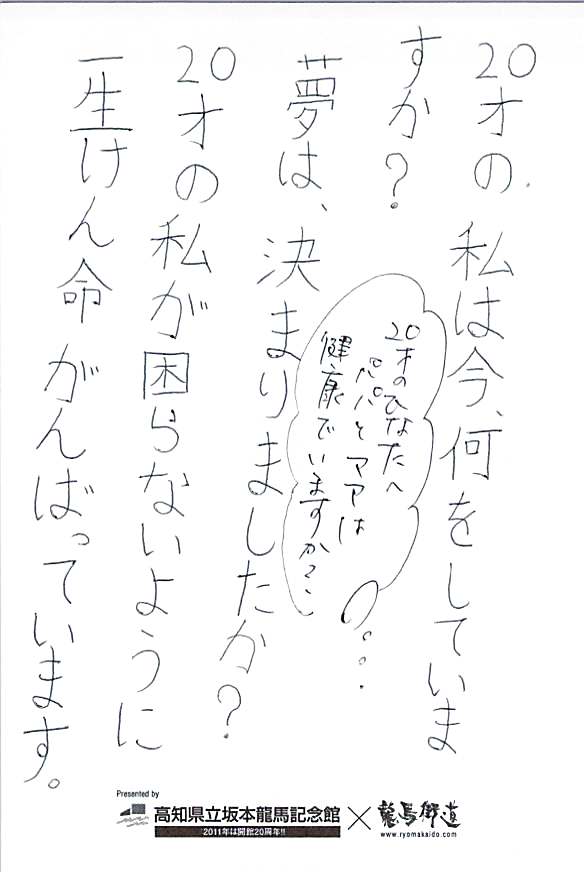 20才の私は今、何をしていま
すか?
夢は、決まりましたか?
20才の私が困らないように
一生けん命がんばっています。
20才のひなたへ
パパとママは
健康でいますか?
Presented by
高知県立坂本龍馬記念館
2011年は開館20周年!!
×
龍馬街道
www.ryomakaido.com